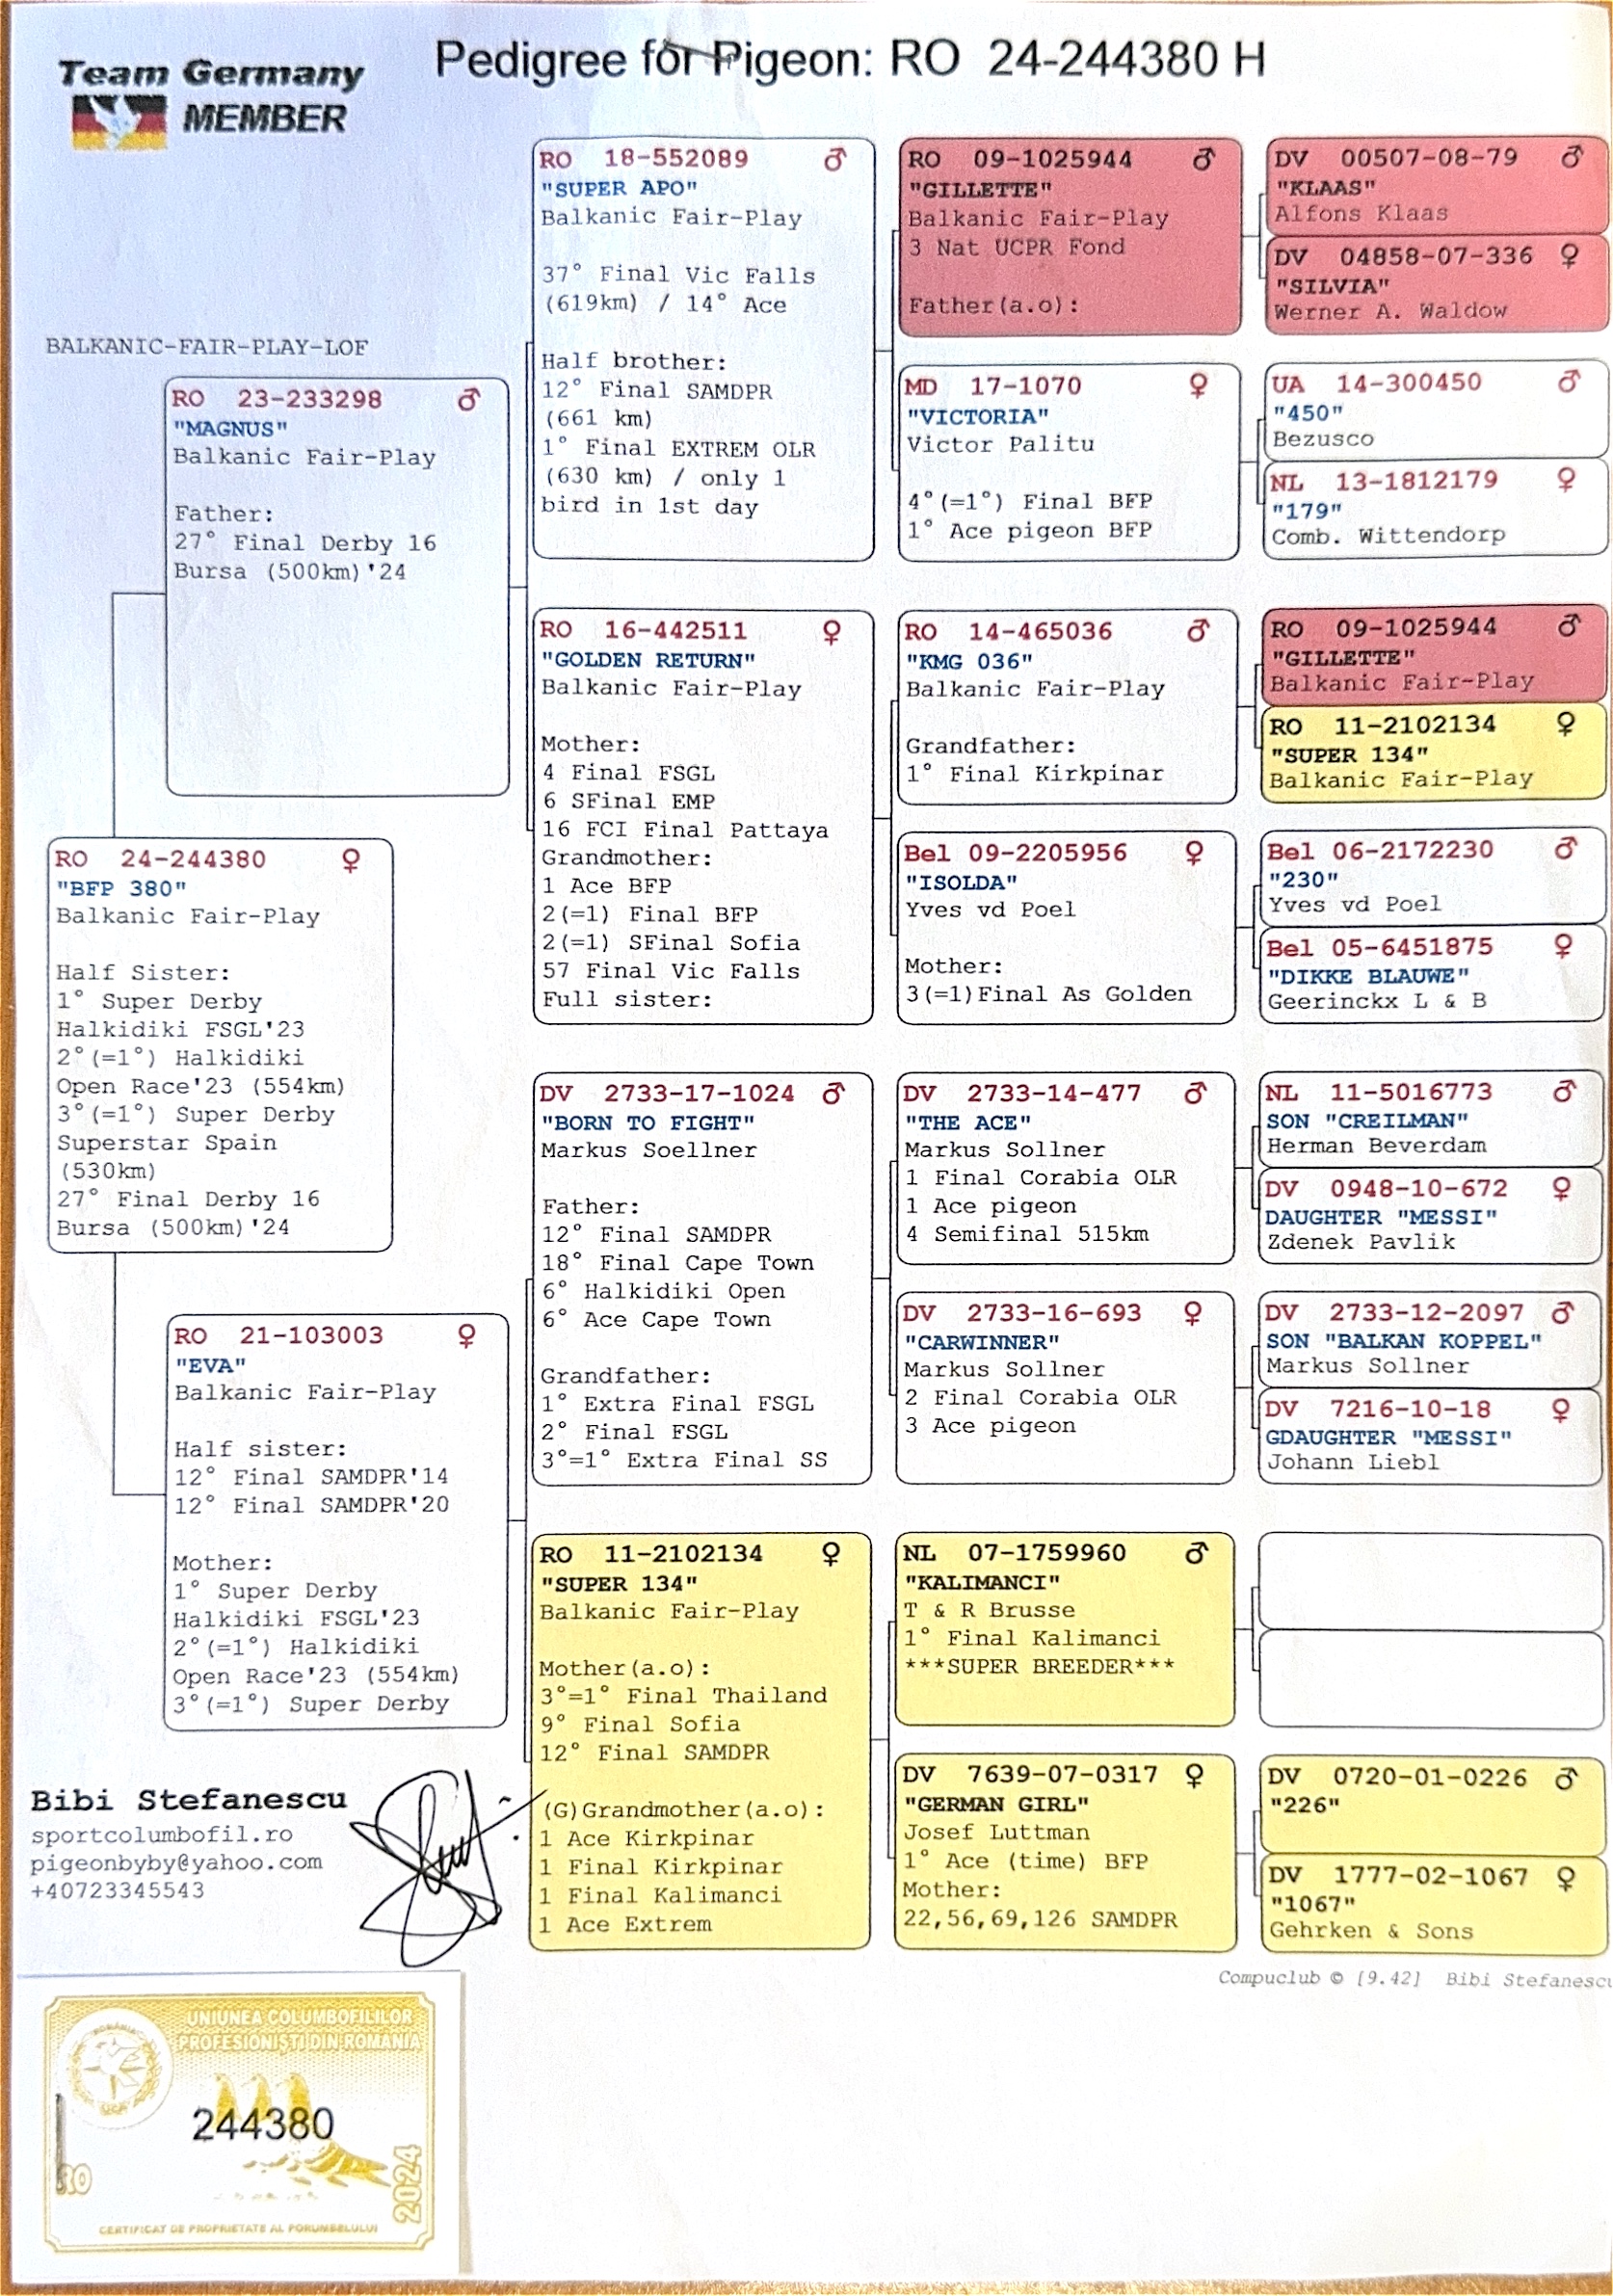 Team Germany
MEMBER
Pedigree for Pigeon: RO 24-244380 H
BALKANIC-FAIR-PLAY-LOF
RO 24-244380 ♀
"BFP 380"
Balkanic Fair-Play
Half Sister:
1° Super Derby
Halkidiki FSGL'23
2°(=1°) Halkidiki
Open Race'23 (554km)
3°(=1°) Super Derby
Superstar Spain
(530km)
27° Final Derby 16
Bursa (500km)'24
RO 23-233298 ♂
"MAGNUS"
Balkanic Fair-Play
Father:
27° Final Derby 16
Bursa (500km)'24
RO 21-103003 ♀
"EVA"
Balkanic Fair-Play
Half sister:
12° Final SAMDPR'14
12° Final SAMDPR'20
Mother:
1° Super Derby
Halkidiki FSGL'23
2°(=1°) Halkidiki
Open Race'23 (554km)
3°(=1°) Super Derby
RO 18-552089 ♂
"SUPER APO"
Balkanic Fair-Play
37° Final Vic Falls
(619km) / 14° Ace
Half brother:
12° Final SAMDPR
(661 km)
1° Final EXTREM OLR
(630 km) / only 1
bird in 1st day
RO 16-442511 ♀
"GOLDEN RETURN"
Balkanic Fair-Play
Mother:
4 Final FSGL
6 SFinal EMP
16 FCI Final Pattaya
Grandmother:
1 Ace BFP
2(=1) Final BFP
2(=1) SFinal Sofia
57 Final Vic Falls
Full sister:
DV 2733-17-1024 ♂
"BORN TO FIGHT"
Markus Soellner
Father:
12° Final SAMDPR
18° Final Cape Town
6° Halkidiki Open
6° Ace Cape Town
Grandfather:
1° Extra Final FSGL
2° Final FSGL
3°=1° Extra Final SS
RO 11-2102134 ♀
"SUPER 134"
Balkanic Fair-Play
Mother(a.o):
3°=1° Final Thailand
9° Final Sofia
12° Final SAMDPR
(G)Grandmother(a.o):
1 Ace Kirkpinar
1 Final Kirkpinar
1 Final Kalimanci
1 Ace Extrem
RO 09-1025944 ♂
"GILLETTE"
Balkanic Fair-Play
3 Nat UCPR Fond
Father(a.o):
MD 17-1070 ♀
"VICTORIA"
Victor Palitu
4°(=1°) Final BFP
1° Ace pigeon BFP
RO 14-465036 ♂
"KMG 036"
Balkanic Fair-Play
Grandfather:
1° Final Kirkpinar
Bel 09-2205956 ♀
"ISOLDA"
Yves vd Poel
Mother:
3(=1)Final As Golden
DV 2733-14-477 ♂
"THE ACE"
Markus Sollner
1 Final Corabia OLR
1 Ace pigeon
4 Semifinal 515km
DV 2733-16-693 ♀
"CARWINNER"
Markus Sollner
2 Final Corabia OLR
3 Ace pigeon
NL 07-1759960 ♂
"KALIMANCI"
T & R Brusse
1° Final Kalimanci
***SUPER BREEDER***
DV 7639-07-0317 ♀
"GERMAN GIRL"
Josef Luttman
1° Ace (time) BFP
Mother:
22,56,69,126 SAMDPR
DV 00507-08-79 ♂
"KLAAS"
Alfons Klaas
DV 04858-07-336 ♀
"SILVIA"
Werner A. Waldow
UA 14-300450 ♂
"450"
Bezusco
NL 13-1812179 ♀
"179"
Comb. Wittendorp
RO 09-1025944 ♂
"GILLETTE"
Balkanic Fair-Play
RO 11-2102134 ♀
"SUPER 134"
Balkanic Fair-Play
Bel 06-2172230 ♂
"230"
Yves vd Poel
Bel 05-6451875 ♀
"DIKKE BLAUWE"
Geerinckx L & B
NL 11-5016773 ♂
SON "CREILMAN"
Herman Beverdam
DV 0948-10-672 ♀
DAUGHTER "MESSI"
Zdenek Pavlik
DV 2733-12-2097 ♂
SON "BALKAN KOPPEL"
Markus Sollner
DV 7216-10-18 ♀
GDAUGHTER "MESSI"
Johann Liebl
DV 0720-01-0226 ♂
"226"
DV 1777-02-1067 ♀
"1067"
Gehrken & Sons
Bibi Stefanescu
sportcolumbofil.ro
pigeonbyby@yahoo.com
+40723345543
Compuclub © [9.42] Bibi Stefanescu
UNIUNEA COLUMBOFILILOR
PROFESIONIȘTI DIN ROMANIA
244380
RO
2024
CERTIFICAT DE PROPRIETATE AL PORUMBELULUI